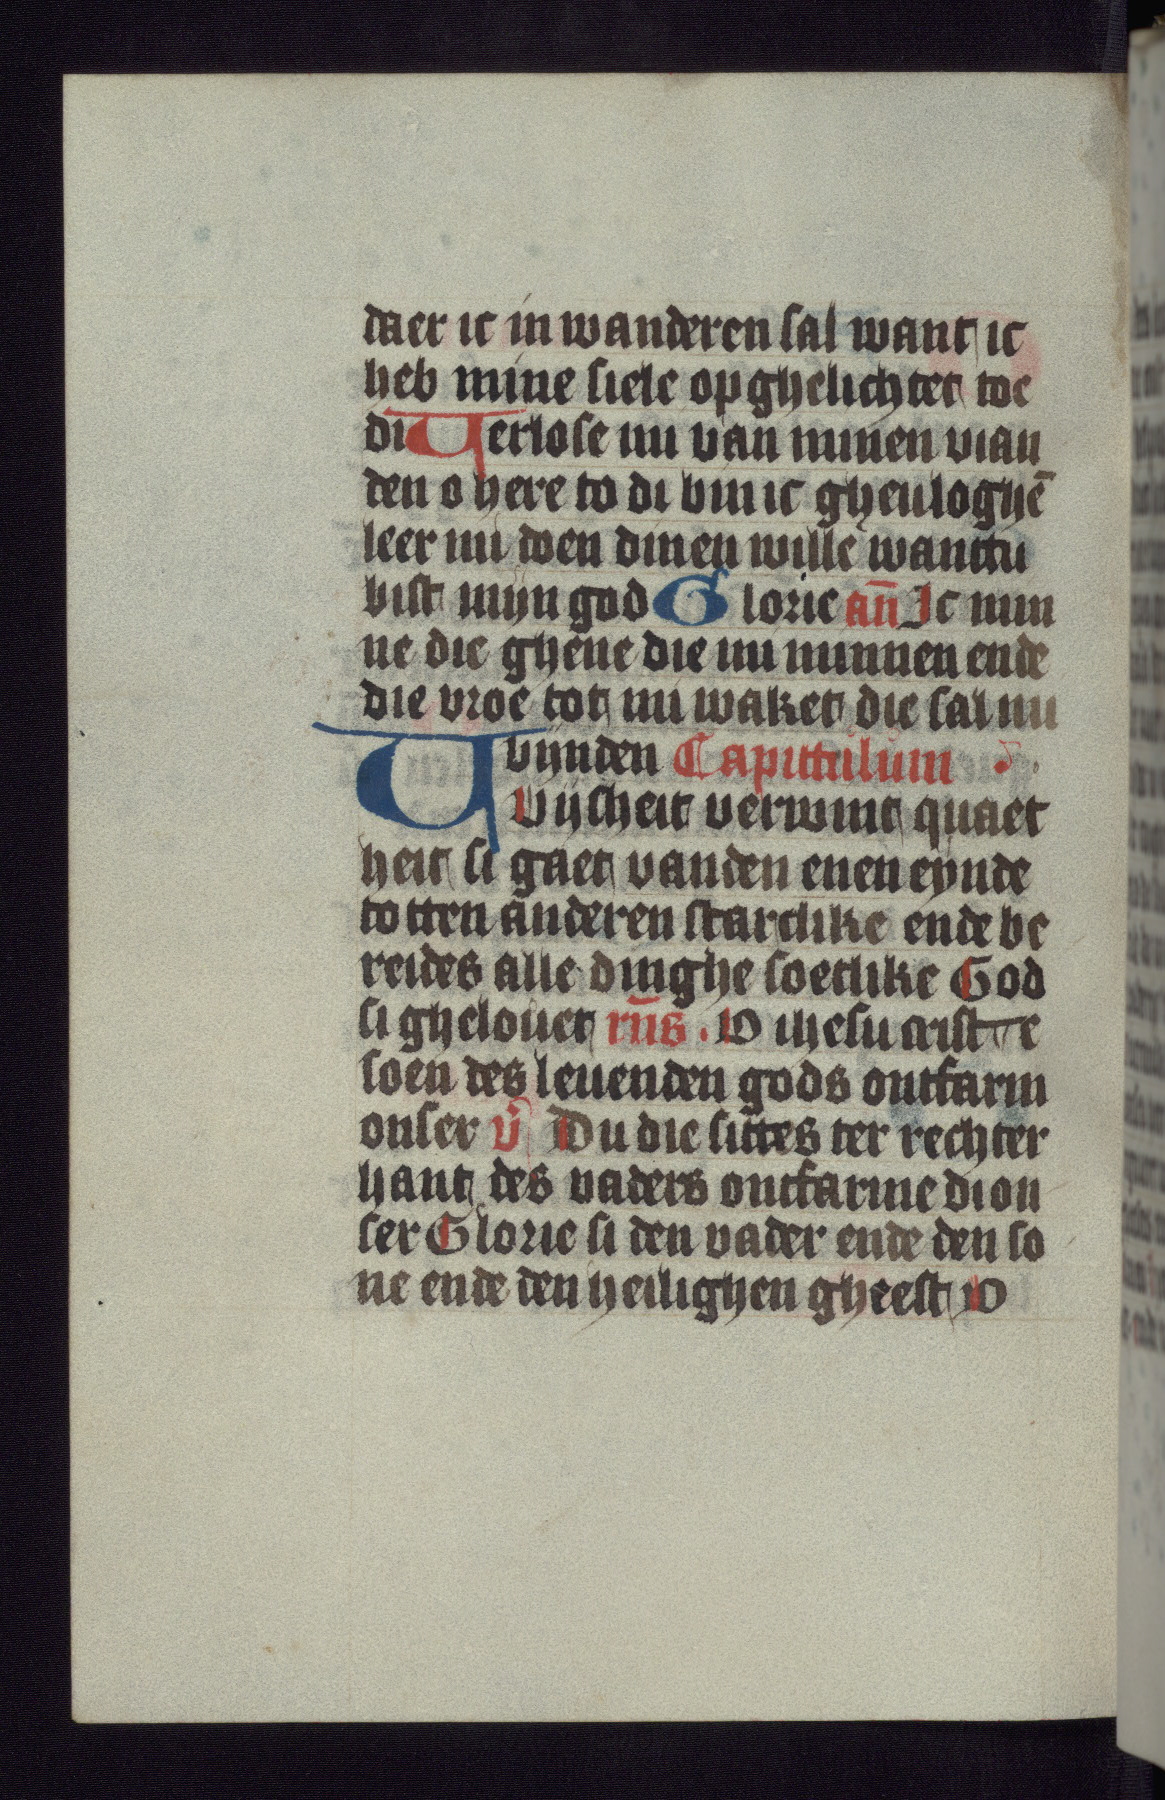 daer ic in wanderen sal want ic
heb mine siele op ghelichtet toe
di Verlose mi van minen vian
den o here to di bin ic gheuloghē
leer mi doen dinen wille wanttu
bist mijn god Glorie an̄ Ic min
ne die ghene die mi minnen ende
die vroe tot mi waket die sal mi
vijnden Capittulum
Vvijsheit verwint quaet
heit si gaet vanden enen eynde
totten anderen starclike ende be
reides alle dinghe soetlike God
si ghelouet rn̄s . O ihesu criste
soen des leuenden gods ontfarm
onser v̄ Du die sittes ter rechter
hant des vaders ontfarme di on
ser Glorie si den vader ende den so
ne ende den heilighen gheest O